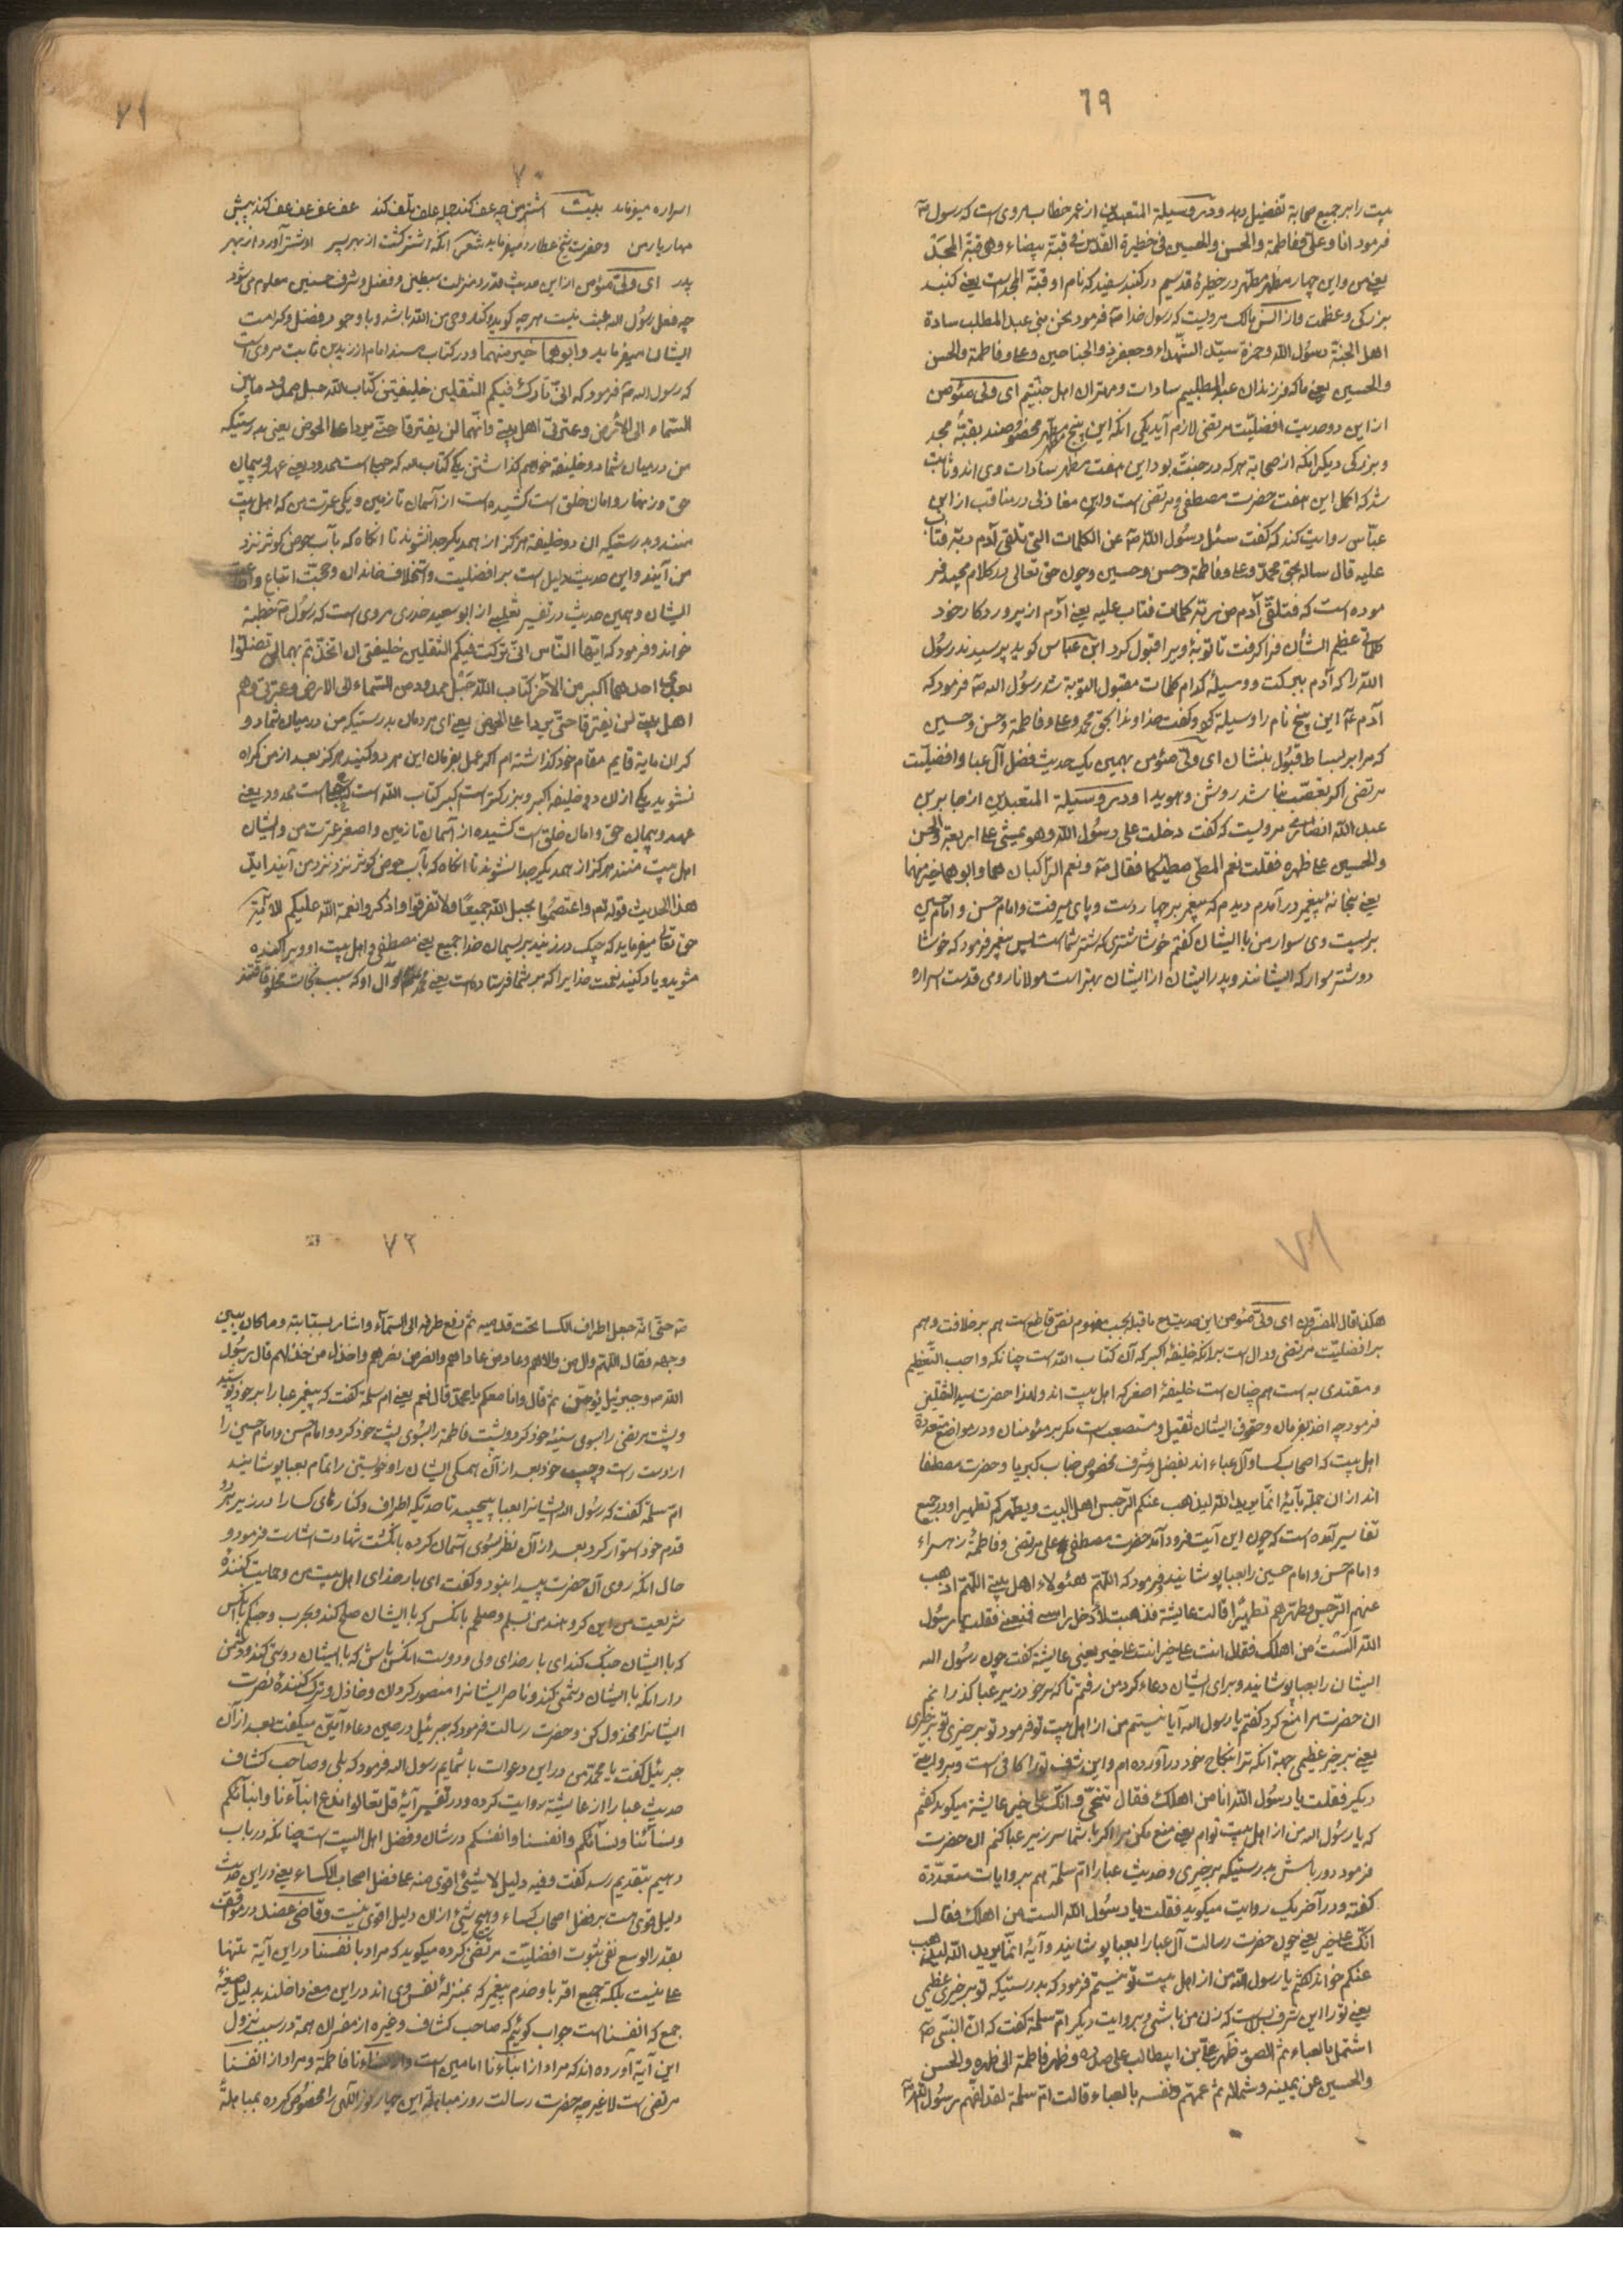 ٦٩
بیت را بر جمیع صحابة تفضیل دهد و در وسیلة المتعبدین از عمر خطاب مروی است که رسول صه
فرمود انا و علی و فاطمة و الحسن و الحسین فی حظیرة القدس فی قبة بیضاء و هی قبة المجد
یعنی من و این چهار مظهر مطهر در حظیرۀ قدسیم در کنبد سفید که نام او قبة المجد است یعنی کنبد
بزرکی و عظمت و از انس مالک مرویست که رسول خدا صه فرمود نحن بنی عبد المطلب سادة
اهل الجنة رسول الله و حمزة سید الشهداء و جعفر ذو الجناحین و علی و فاطمة و الحسن
و الحسین یعنی ما که فرزندان عبد المطلبیم سادات و مهتران اهل جنتیم ای ولی مئومن
از این دو حدیث افضلیت مرتضی لازم آید یکی انکه این پنج مطهر مخصوصند بقبۀ مجد
و بزرکی دیکر انکه از صحابة هر که در جنت بود این هفت مطهر سادات وی اند و ثابت
شد که اکمل این هفت حضرت مصطفی و مرتضی است و ابن مغازلی در مناقب از ابن
عباس روایت کند که کفت سئل رسول الله صه عن الکلمات التی تلقی آدم ربه فتاب
علیه قال ساله بحق محمد و علی و فاطمة و حسن و حسین و چون حق تعالی در کلام مجید فر
موده است که فتلقی آدم من ربه کلمات فتاب علیه یعنی آدم از پروردکار خود
کلماتی عظیم الشأن فرا کرفت تا توبۀ ویرا قبول کرد ابن عباس کوید پرسیدند رسول
الله را که آدم ببرکت و وسیلۀ کدام کلمات مقبول التوبة شد رسول الله صه فرمود که
آدم ع این پنج نام را وسیلة کرد و کفت خداوندا بحق محمد و علی و فاطمة و حسن و حسین
که مرا بر بساط قبول بنشان ای ولی مئومن بهمین یک حدیث فضل آل عبا و افضلیت
مرتضی اکر تعصب نباشد روشن و هویدا و در وسیلة المتعبدین از جابر بن
عبد الله انصاری مرویست که کفت دخلت علی رسول الله و هو یمشی علی اربعة و الحسن
و الحسین علی ظهره فقلت نعم المطی مطیکما فقال صه و نعم الراکبان هما و ابوهما خیر منهما
یعنی بخانۀ پیغمبر در آمدم دیدم که پیغمبر بر چهار دست و پای میرفت و امام حسن و امام حسین
بر پشت وی سوار من با ایشان کفتم خوشا شتری که شتر شما است پس پیغمبر فرمود که خوشا
دو شتر سوار که ایشانند و پدر ایشان از ایشان بهتر است مولانا رومی قدست اسراره
٧١
٧٠
اسراره میفرماید بیت اشتر من چه عف کند جمله علف تلف کند عف عف عف عف کند پیش
مهار یار من و حضرت شیخ عطار رد میفرماید شعر انکه اشتر کشت از بهر پسر او شتر آورد از بهر
پدر ای ولی مئومن از این حدیث قدر و منزلت سبطین و فضل و شرف حسنین معلوم می شود
چه فعل رسول الله عبث نیست هر چه کوید و کند وحی من الله باشد و با وجود فضل و کرامت
ایشان میفرماید و ابوهما خیر منهما و در کتاب مسند امام از زید بن ثابت مروی است
که رسول الله صه فرمود که انی تارک فیکم الثقلین خلیفتین کتاب الله حبل ممدود ما بین
السماء الی الارض و عترتی اهل بیتی و انهما لن یفترقا حتی یردا علی الحوض یعنی بدرستیکه
من در میان شما دو خلیفة خواهم کذاشتن یکی کتاب الله که حبلی است ممدود یعنی عهد و پیمان
حق و زنهار و امان خلق است کشیده است از آسمان تا زمین و یکی عترت من که اهل بیت
منند و بدرستیکه ان دو خلیفة هرکز از همدیکر جدا نشوند تا انکاه که بآب حوض کوثر نزد
من آیند و این حدیث دلیل است بر افضلیت و استخلاف خاندان و حجت اتباع و اطاعت
ایشان و همین حدیث در تفسیر ثعلبی از ابو سعید خدری مروی است که رسول صه خطبة
خواند و فرمود که ایها الناس انی ترکت فیکم الثقلین خلیفتی ان اتخذتم بهما لن تضلوا
بعدی احدهما اکبر من الآخر کتاب الله حبل ممدود من السماء الی الارض و عترتی و هم
اهل بیتی لن یفترقا حتی یردا علی الحوض یعنی ای مردمان بدرستیکه من در میان شما دو
کران مایة قایم مقام خود کذاشته ام اکر عمل بفرمان این هر دو کنید هرکز بعد از من کمراه
نشوید یکی از ان دو خلیفه اکبر و بزرکتر است اکبر کتاب الله است که حبلی است ممدود یعنی
عهد و پیمان حق و امان خلق است کشیده از آسمان تا زمین و اصغر عترت من و ایشان
اهل بیت منند هرکز از همدیکر جدا نشوند تا انکاه که بآب حوض کوثر نزد نزد من آیند ایّد
هذا الحدیث قوله تعم و اعتصموا بحبل الله جمیعا و لا تفرقوا و اذکروا نعمة الله علیکم الآیة
حق تعالی میفرماید که چنک در زنید بریسمان خدا جمیع یعنی مصطفی و اهل بیت او و پراکنده
مشوید و یاد کنید نعمت خدایرا که بر شما فرستاده است یعنی محمد و آل او که سبب نجات مخلوقاتند
٧١
هکذا قال المفسرون ای ولی مئومن این حدیث مع ما قبله بحسب مفهوم نص قاطع است هم بر خلافت و هم
بر افضلیت مرتضی و دال است بر انکه خلیفۀ اکبر که آن کتاب الله است چنانکه واجب التعظیم
و مقتدی به است هم چنان است خلیفۀ اصغر که اهل بیت اند و لهذا حضرت سید الثقلین
فرمود چه اخذ بفرمان و حقوق ایشان ثقیل و مستصعب است مکر بر مئومنان و در مواضع متعددة
اهل بیت که اصحاب کسا و آل عباء اند بفضل و شرف مخصوص جناب کبریا و حضرت مصطفا
اند از ان جملة بآیۀ انما یرید الله لیذهب عنکم الرجس اهل البیت و یطهرکم تطهیرا و در جمیع
تفاسیر آمده است که چون این آیت فرود آمد حضرت مصطفی علی مرتضی و فاطمۀ زهراء
و امام حسن و امام حسین را بعبا پوشانید و فرمود که اللهم هئولاء اهل بیتی اللهم اذهب
عنهم الرجس و طهرهم تطهیرا قالت عایشة فذهبت لادخل راسی فمنعنی فقلت یا رسول
الله ألست من اهلک فقال انت علی خیر انت علی خیر یعنی عایشة کفت چون رسول الله
ایشان را بعبا پوشانید و برای ایشان دعاء کرد من رفتم تا که سر خود زیر عبا کذرانم
ان حضرت مرا منع کرد کفتم یا رسول الله آیا نیستم من از اهل بیت تو فرمود تو بر خیری تو بر خیری
یعنی بر خیر عظیمی جهة انکه ترا بنکاح خود در آورده ام و این شرف تو را کافی است و بروایت
دیکر فقلت یا رسول الله انا من اهلک فقال تنحی و انک علی خیر عایشة میکوید کفتم
که یا رسول الله من از اهل بیت توام یعنی منع مکن مرا اکر با شما سر زیر عبا کنم ان حضرت
فرمود دور باش بدرستیکه بر خیری و حدیث عبا را ام سلمة هم بروایات متعددة
کفته و در آخر یک روایت میکوید فقلت یا رسول الله الست من اهلک فقال
انک علی خیر یعنی چون حضرت رسالت آل عبا را بعبا پوشانید و آیۀ انما یرید الله لیذهب
عنکم خواند کفتم یا رسول الله من از اهل بیت تو نیستم فرمود که بدرستیکه تو بر خیری عظیمی
یعنی تو را این شرف بس است که زن من باشی و بروایت دیکر ام سلمة کفت که ان النبی صه
اشتمل بالعباء ثم الصق ظهر علی بن ابیطالب علی صدره و ظهر فاطمة الی ظهره و الحسن
و الحسین عن یمینه و شماله ثم عمهم و نفسه بالعباء قالت ام سلمة لقد لفهم رسول الله صه
٧٢
صه حتی انه جعل اطراف الکسا تحت قدمیه ثم رفع طرفه الی السماء و اشار بسبابته و ما کان یبین
وجهه فقال اللهم وال من والاهم و عاد من عاداهم و انصر من نصرهم و اخذل من خذلهم قال رسول
الله صه و جبرئیل یؤمن ثم قال و انا معکم یا محمد قال نعم یعنی ام سلمة کفت که پیغمبر عبا را بر خود پوشید
و پشت مرتضی را بسوی سینۀ خود کرد و پشت فاطمة را بسوی پشت خود کرد و امام حسن و امام حسین را
از دست راست و چپ خود بعد از آن همکی ایشان را و خویشتن را تمام بعبا پوشانید
ام سلمة کفت که رسول الله ایشانرا بعبا پیچید تا حدیکه اطراف و کنارهای کسا را در زیر هر دو
قدم خود استوار کرد بعد از آن نظر بسوی آسمان کرده بانکشت شهادت اشارت فرمود و
حال انکه روی آن حضرت پیدا بنود و کفت ای بار خدای اهل بیت من و حمایت کنندۀ
شریعت من این کروهند من بسلم و صلحم بانکس که با ایشان صلح کند و بحرب و جنکم بانکس
که با ایشان جنک کند ای بار خدای ولی و دوست انکس باش که با ایشان دوستی کند و دشمن
دار انکه با ایشان دشمنی کند و ناصر ایشانرا منصور کردان و خاذل و ترک کنندۀ نصرت
ایشانرا مخذول کن و حضرت رسالت فرمود که جبرئیل در حین دعاء آمین میکفت بعد از آن
جبرئیل کفت یا محمد من در این دعوات با شمایم رسول الله فرمود که بلی و صاحب کشاف
حدیث عبا را از عایشة روایت کرده و در تفسیر آیۀ قل تعالوا ندع ابناءنا و ابناءکم
و نسائنا و نسائکم و انفسنا و انفسکم در شان و فضل اهل البیت است چنانکه در باب
دهیم بتقدیم رسد کفت و فیه دلیل لا شیئ اقوی منه علی فضل اصحاب الکساء یعنی در این حدیث
دلیل قوی است بر فضل اصحاب کساء و هیچ شیئ از ان دلیل اقوی نیست و قاضی عضد در مواقف
بقدر الوسع نفی ثبوت افضلیت مرتضی کرده میکوید که مراد با نفسنا در این آیة تنها
علی نیست بلکه جمیع اقربا و خدم پیغمبر که بمنزلۀ نفس وی اند در این معنی داخلند بدلیل صیغۀ
جمع که انفسنا است جواب کوئیم که صاحب کشاف و غیره از مفسران همة در سبب نزول
این آیة آورده اند که مراد از ابناءنا امامین است و از نساءنا فاطمة و مراد از انفسنا
مرتضی است لا غیر چه حضرت رسالت روز مباهلة این چهار نور الهی را مخصوص کرده بمباهلۀ